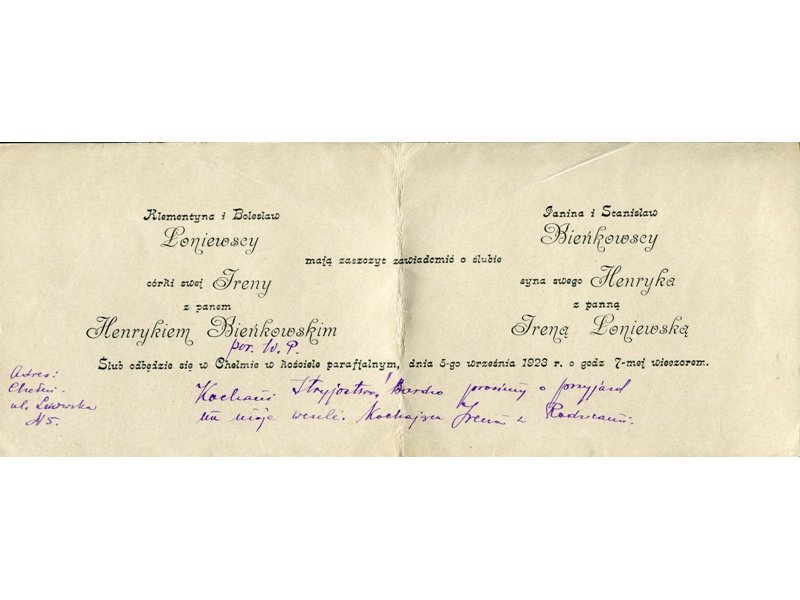 Klementyna i Bolesław
Łoniewscy
Janina i Stanisław
Bieńkowscy
mają zaszczyt zawiadomić o ślubie
córki swej Ireny
z panem
Henrykiem Bieńkowskim
por. W. P.
syna swego Henryka
z panną
Ireną Łoniewską
Ślub odbędzie się w Chełmie w kościele parafjalnym, dnia 5-go września 1923 r. o godz 7-mej wieczorem.
Adres:
Chełm.
ul. Lwowska
№5.
Kochani Stryjostwo! Bardzo prosimy o przyjazd
na moje wesele. Kochająca Irena z Rodzicami.